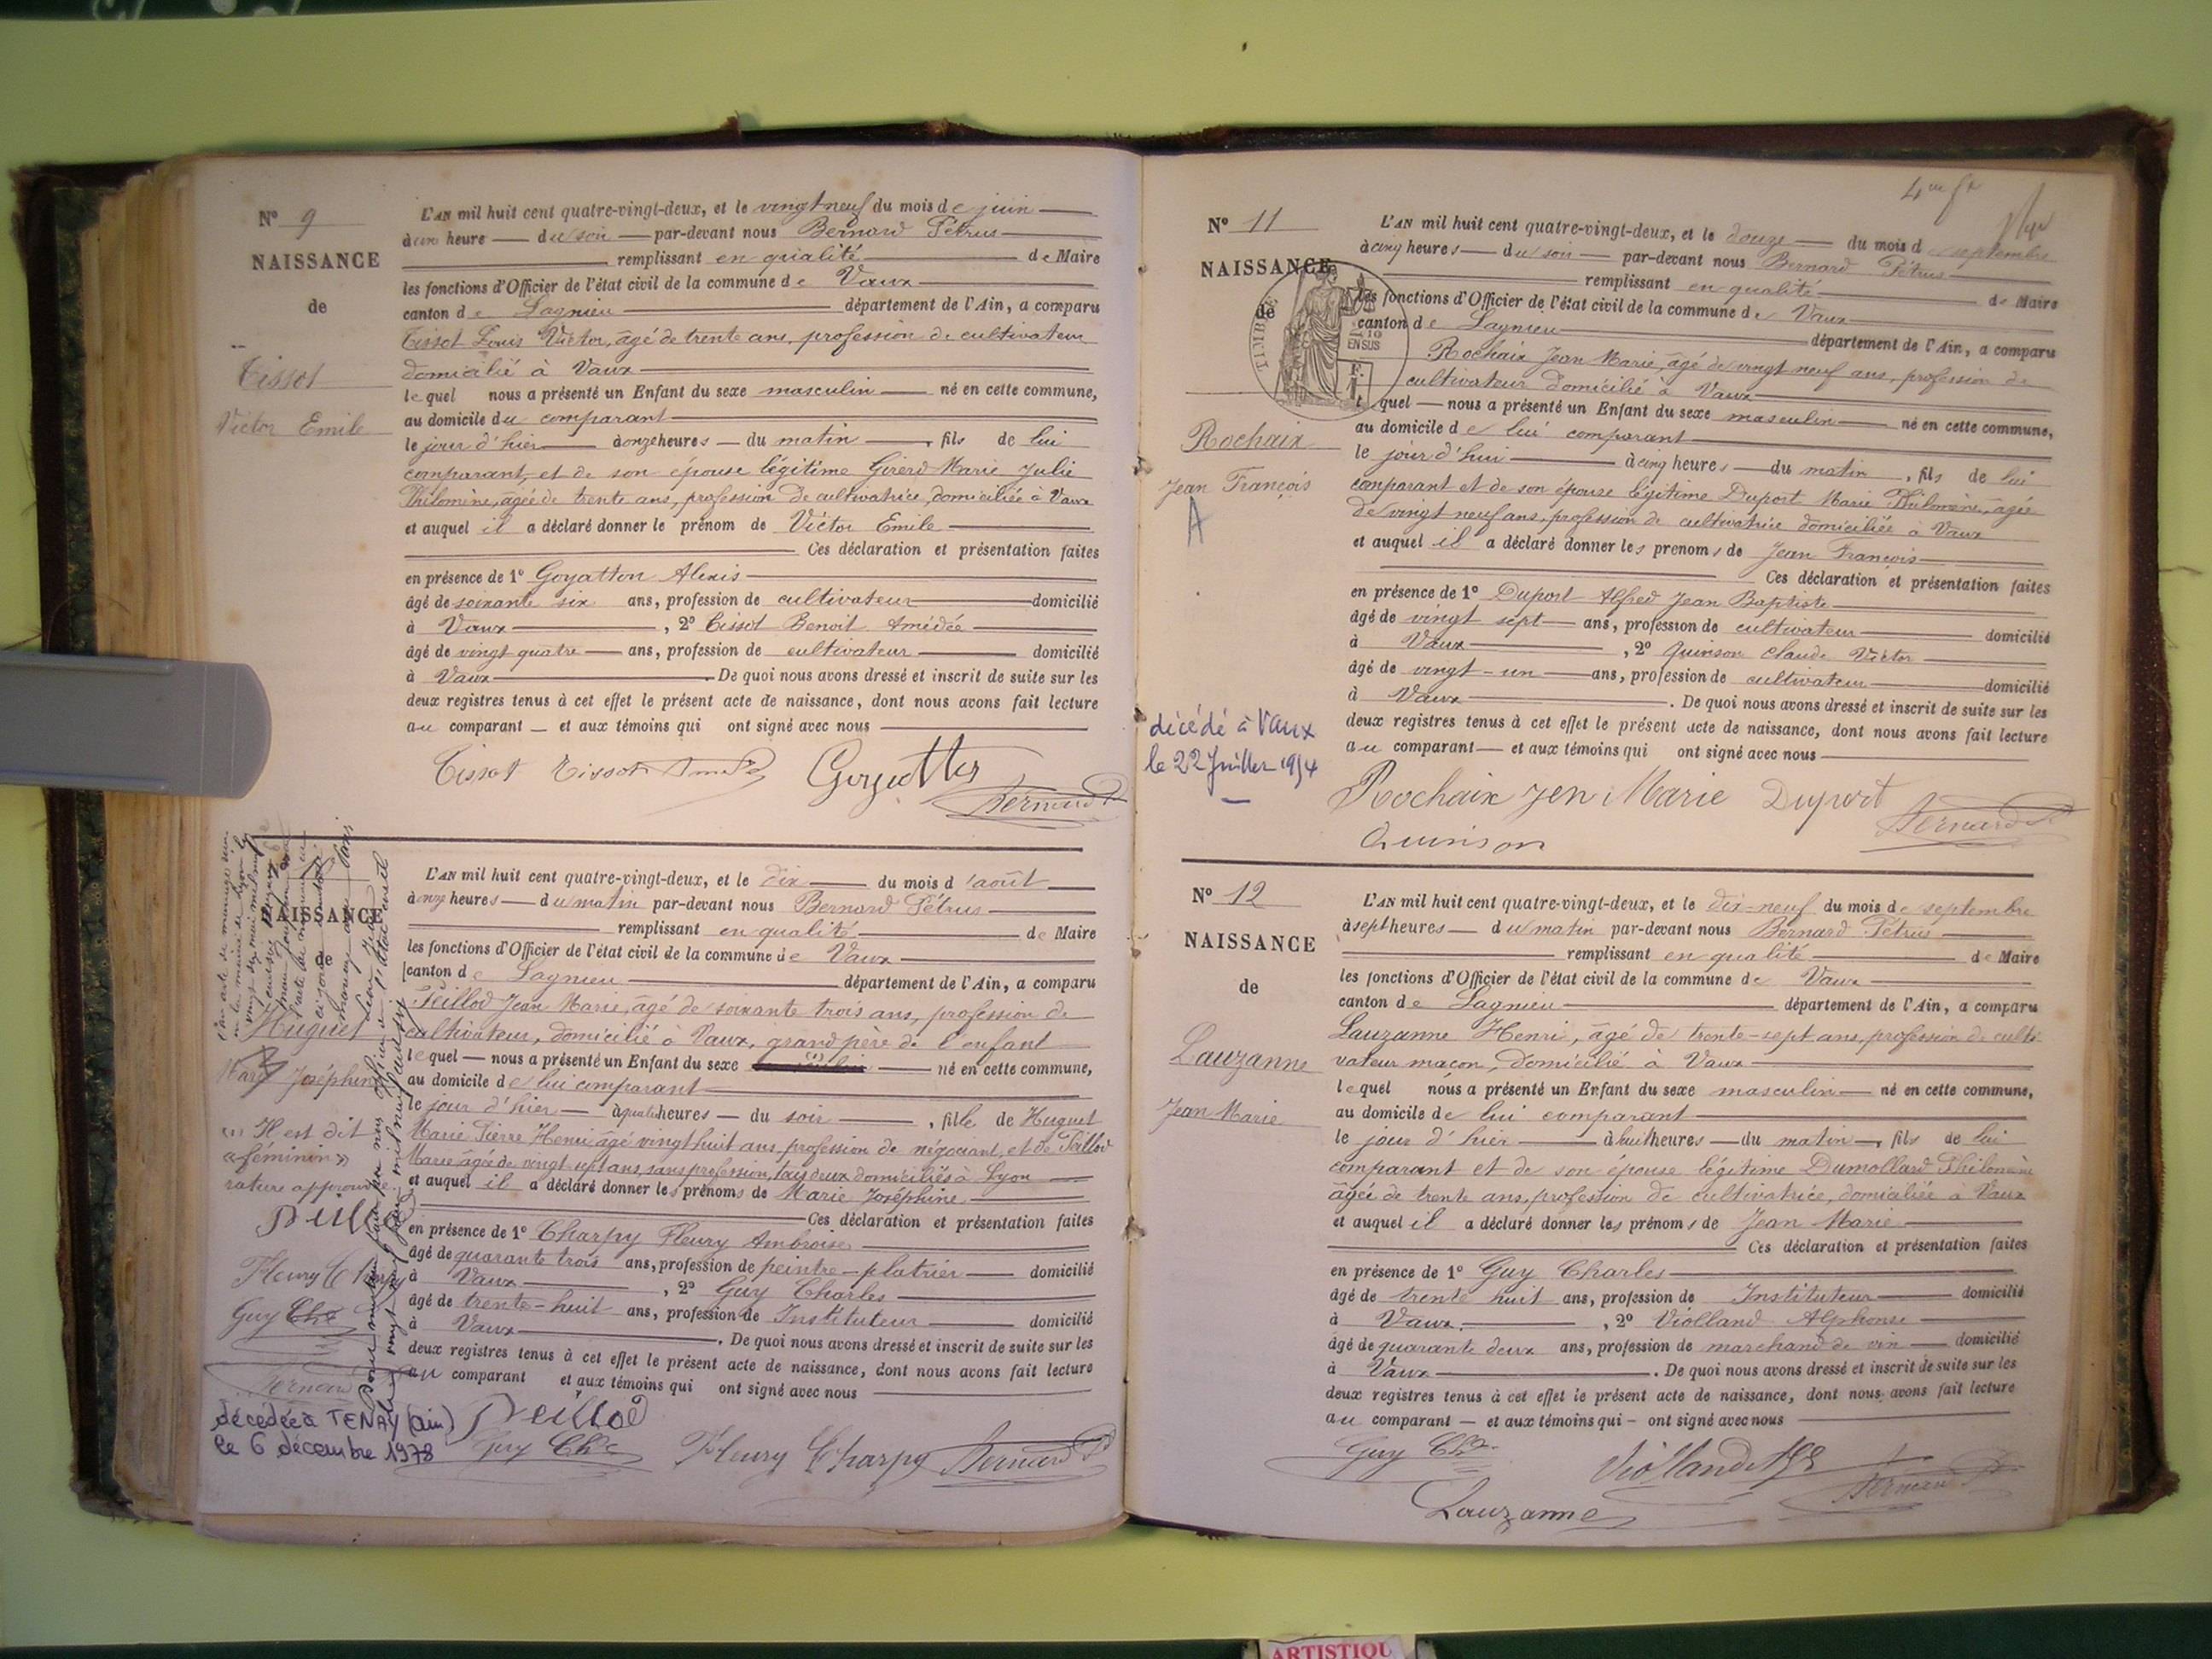 N° 9
NAISSANCE
de
Tissot
Victor Emile
L'AN mil huit cent quatre-vingt-deux, et le vingt neuf du mois de juin
à une heure du soir par-devant nous Bernard Pétrus
remplissant en qualité de Maire
les fonctions d'Officier de l'état civil de la commune de Vaux
canton de Lagnieu département de l'Ain, a comparu
Tissot Louis Victor, âgé de trente ans, profession de cultivateur
domicilié à Vaux
lequel nous a présenté un Enfant du sexe masculin né en cette commune,
au domicile du comparant
le jour d'hier à onze heures du matin, fils de lui
comparant, et de son épouse légitime Girerd Marie Julie
Philomène, âgée de trente ans, profession de cultivatrice, domiciliée à Vaux
et auquel il a déclaré donner le prénom de Victor Emile
Ces déclaration et présentation faites
en présence de 1° Goyatton Alexis
âgé de soixante six ans, profession de cultivateur domicilié
à Vaux, 2° Tissot Benoit Amédée
âgé de vingt quatre ans, profession de cultivateur domicilié
à Vaux. De quoi nous avons dressé et inscrit de suite sur les
deux registres tenus à cet effet le présent acte de naissance, dont nous avons fait lecture
au comparant et aux témoins qui ont signé avec nous
Tissot Tissot Amédée Goyatton
Bernard P
NAISSANCE
de
Huguet
Marie Joséphine
(1) Il est dit
« féminin »
rature approuvée.
Peillod
Fleury Charpy
Guy Chs
Bernard
décédée à TENAY (ain)
le 6 décembre 1978
L'AN mil huit cent quatre-vingt-deux, et le dix du mois d'août
à onze heures du matin par-devant nous Bernard Pétrus
remplissant en qualité de Maire
les fonctions d'Officier de l'état civil de la commune de Vaux
canton de Lagnieu département de l'Ain, a comparu
Peillod Jean Marie, âgé de soixante trois ans, profession de
cultivateur, domicilié à Vaux, grand père de l'enfant
lequel nous a présenté un Enfant du sexe (1) né en cette commune,
au domicile de lui comparant
le jour d'hier à quatre heures du soir, fille de Huguet
Marie Pierre Henri âgé vingt huit ans, profession de négociant, et de Peillod
Marie âgée de vingt sept ans, sans profession, tous deux domiciliés à Lyon
et auquel il a déclaré donner les prénoms de Marie Joséphine
Ces déclaration et présentation faites
en présence de 1° Charpy Fleury Ambroise
âgé de quarante trois ans, profession de peintre-platrier domicilié
à Vaux, 2° Guy Charles
âgé de trente-huit ans, profession de Instituteur domicilié
à Vaux. De quoi nous avons dressé et inscrit de suite sur les
deux registres tenus à cet effet le présent acte de naissance, dont nous avons fait lecture
au comparant et aux témoins qui ont signé avec nous
Peillod
Guy Chs Fleury Charpy Bernard P
N° 11
NAISSANCE
de
TIMBRE
Rochaix
Jean François
A
décédé à Vaux
le 22 Juillet 1954
L'AN mil huit cent quatre-vingt-deux, et le douze du mois de septembre
à cinq heures du soir par-devant nous Bernard Pétrus
remplissant en qualité de Maire
les fonctions d'Officier de l'état civil de la commune de Vaux
canton de Lagnieu département de l'Ain, a comparu
Rochaix Jean Marie, âgé de vingt neuf ans, profession de
cultivateur domicilié à Vaux
quel nous a présenté un Enfant du sexe masculin né en cette commune,
au domicile de lui comparant
le jour d'hui à cinq heures du matin, fils de lui
comparant et de son épouse légitime Duport Marie Philomène, âgée
de vingt neuf ans, profession de cultivatrice domiciliée à Vaux
et auquel il a déclaré donner les prenoms de Jean François
Ces déclaration et présentation faites
en présence de 1° Duport Alfred Jean Baptiste
âgé de vingt sept ans, profession de cultivateur domicilié
à Vaux, 2° Quinson Claude Victor
âgé de vingt-un ans, profession de cultivateur domicilié
à Vaux. De quoi nous avons dressé et inscrit de suite sur les
deux registres tenus à cet effet le présent acte de naissance, dont nous avons fait lecture
au comparant et aux témoins qui ont signé avec nous
Rochaix Jen Marie Duport
Bernard P
Quinson
N° 12
NAISSANCE
de
Lauzanne
Jean Marie
L'AN mil huit cent quatre-vingt-deux, et le dix-neuf du mois de septembre
à sept heures du matin par-devant nous Bernard Pétrus
remplissant en qualité de Maire
les fonctions d'Officier de l'état civil de la commune de Vaux
canton de Lagnieu département de l'Ain, a comparu
Lauzanne Henri, âgé de trente-sept ans, profession de culti-
vateur maçon, domicilié à Vaux
lequel nous a présenté un Enfant du sexe masculin né en cette commune,
au domicile de lui comparant
le jour d'hier à huit heures du matin, fils de lui
comparant et de son épouse légitime Dumollard Philomène
âgée de trente ans, profession de cultivatrice, domiciliée à Vaux
et auquel il a déclaré donner les prénoms de Jean Marie
Ces déclaration et présentation faites
en présence de 1° Guy Charles
âgé de trente huit ans, profession de Instituteur domicilié
à Vaux, 2° Violland Alphonse
âgé de quarante deux ans, profession de marchand de vin domicilié
à Vaux. De quoi nous avons dressé et inscrit de suite sur les
deux registres tenus à cet effet le présent acte de naissance, dont nous avons fait lecture
au comparant et aux témoins qui ont signé avec nous
Guy Chs Violland
Bernard P
Lauzanne
ARTISTIQU